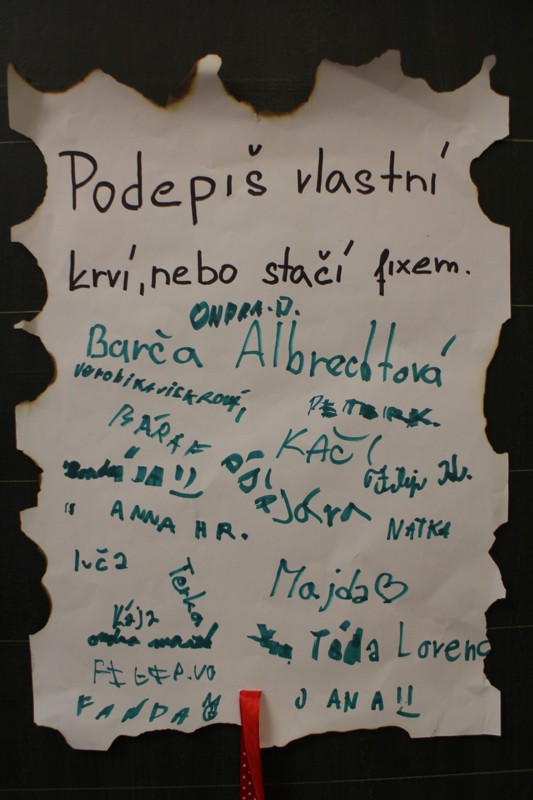 Podepiš vlastní
krví, nebo stačí fixem.
ONDRA.D.
Barča Albrechtová
PETRIRK.
BÁRA F
KAČ
JÁ !!
JOHRA
ANNA HR.
NATKA
Ivča
Terka
Majda♡
Kája
Táda Lorenc
FILIP.VO
FANDA
JANA!!